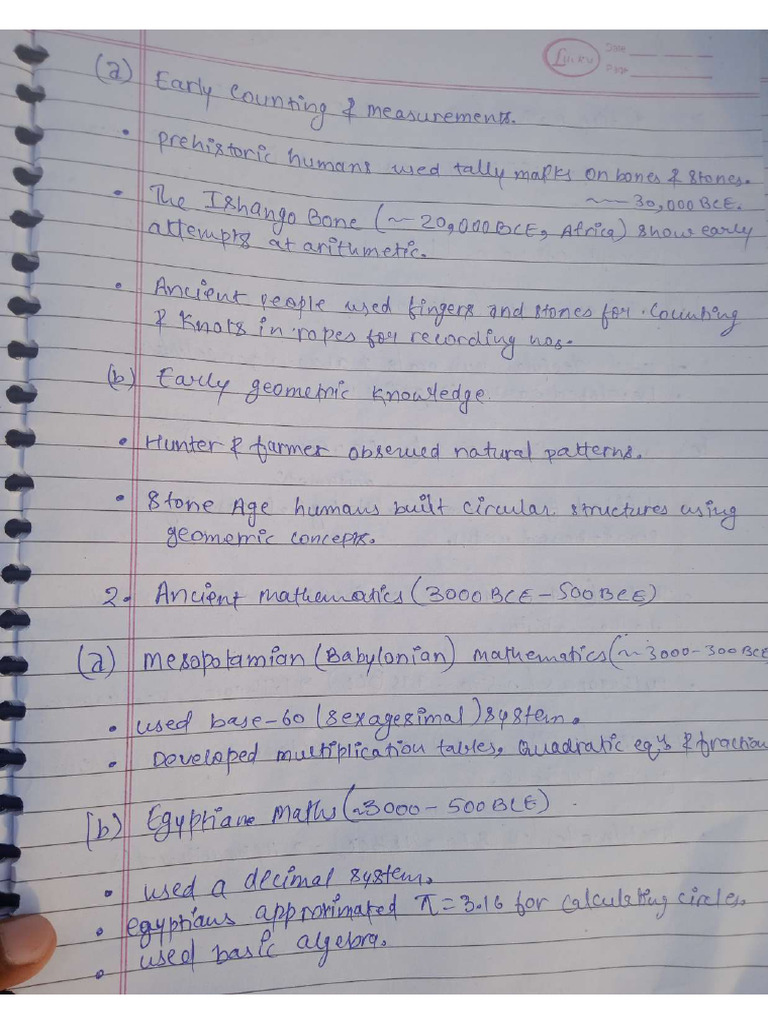 Lucky
Date
Page
(a) Early Counting & measurements.
• Prehistoric humans used tally marks on bones & stones.
~ 30,000 BCE.
• The Ishango Bone (~ 20,000 BCE, Africa) show early
attempts at arithmetic.
• Ancient people used fingers and stones for counting
& knots in ropes for recording nos.
(b) Early geometric knowledge.
• Hunter & farmer observed natural patterns.
• Stone Age humans built circular structures using
geometric concepts.
2. Ancient mathematics (3000 BCE – 500 BCE)
(a) Mesopotamian (Babylonian) mathematics (~ 3000 - 300 BCE
• used base-60 (sexagesimal) system.
• Developed multiplication tables, quadratic eq's & fraction
(b) Egyptiane Maths (~3000 - 500 BCE)
• used a decimal system.
• egyptians approximated π = 3.16 for calculating circles.
• used basic algebra.